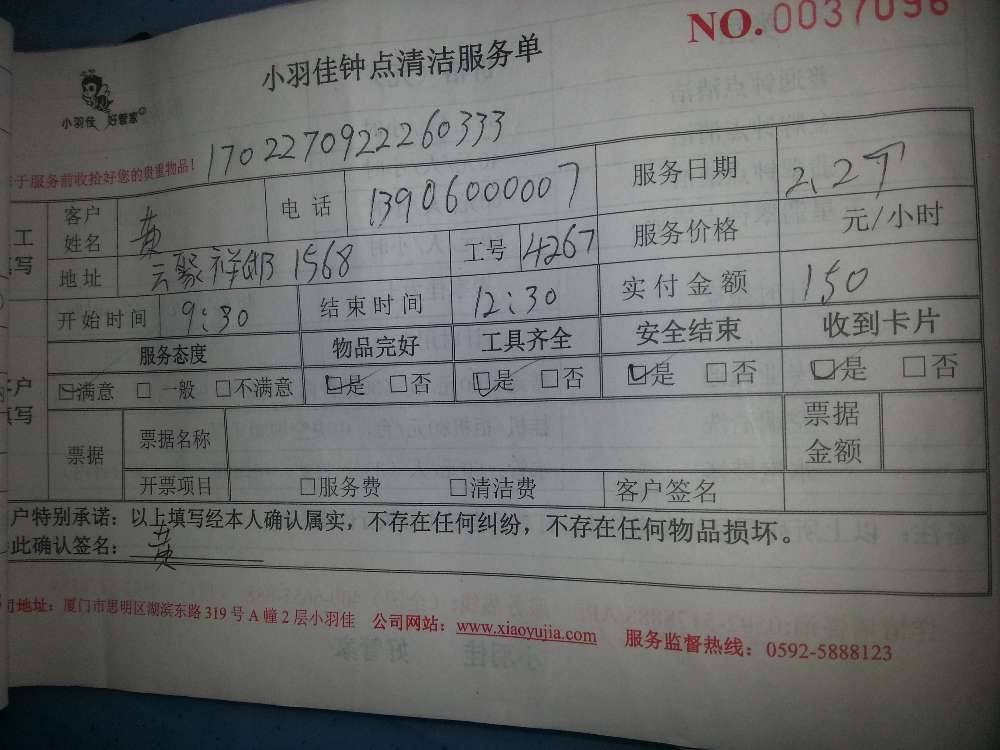 NO.0037096
小羽佳钟点清洁服务单
小羽佳 好管家
于服务前收拾好您的贵重物品! 1702270922260333
工 客户姓名 黄 电话 13906000007 服务日期 2.27
填写 地址 云聚祥邸 1568 工号 4267 服务价格 元/小时
开始时间 9:30 结束时间 12:30 实付金额 150
服务态度 物品完好 工具齐全 安全结束 收到卡片
客户填写 ☑满意 □一般 □不满意 ☑是 □否 ☑是 □否 ☑是 □否 ☑是 □否
票据 票据名称 票据金额
开票项目 □服务费 □清洁费 客户签名
户特别承诺：以上填写经本人确认属实，不存在任何纠纷，不存在任何物品损坏。
此确认签名：黄
司地址：厦门市思明区湖滨东路319号A幢2层小羽佳 公司网站：www.xiaoyujia.com 服务监督热线：0592-5888123